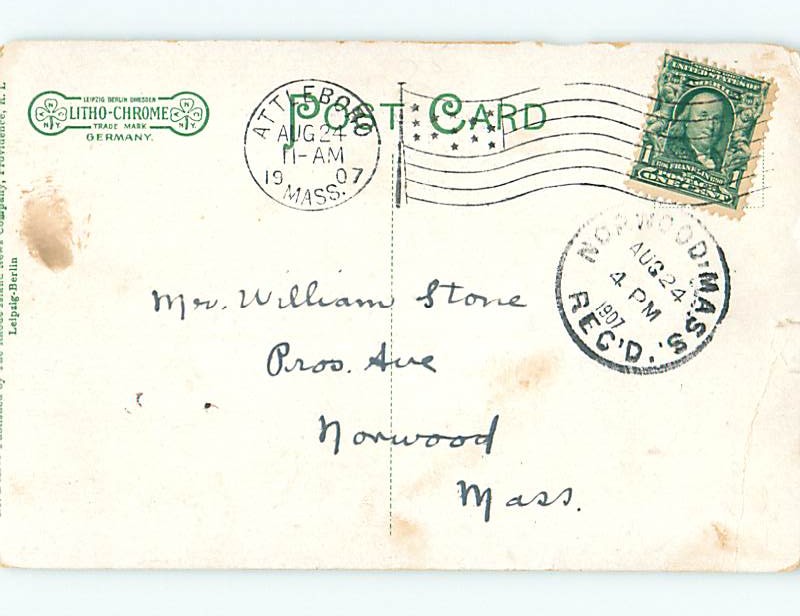 LEIPZIG BERLIN DRESDEN
LITHO-CHROME
TRADE MARK
GERMANY.
N Y
N Y
POST CARD
ATTLEBORO
AUG 24
11-AM
1907
MASS.
UNITED STATES OF AMERICA
FRANKLIN
1 1
POSTAGE
ONE CENT
NORWOOD, MASS.
AUG 24
4 PM
1907
REC'D.
Mr. William Stone
Pros. Ave
Norwood
Mass.
Published by The Rhode Island News Company, Providence, R. I.
Leipzig-Berlin